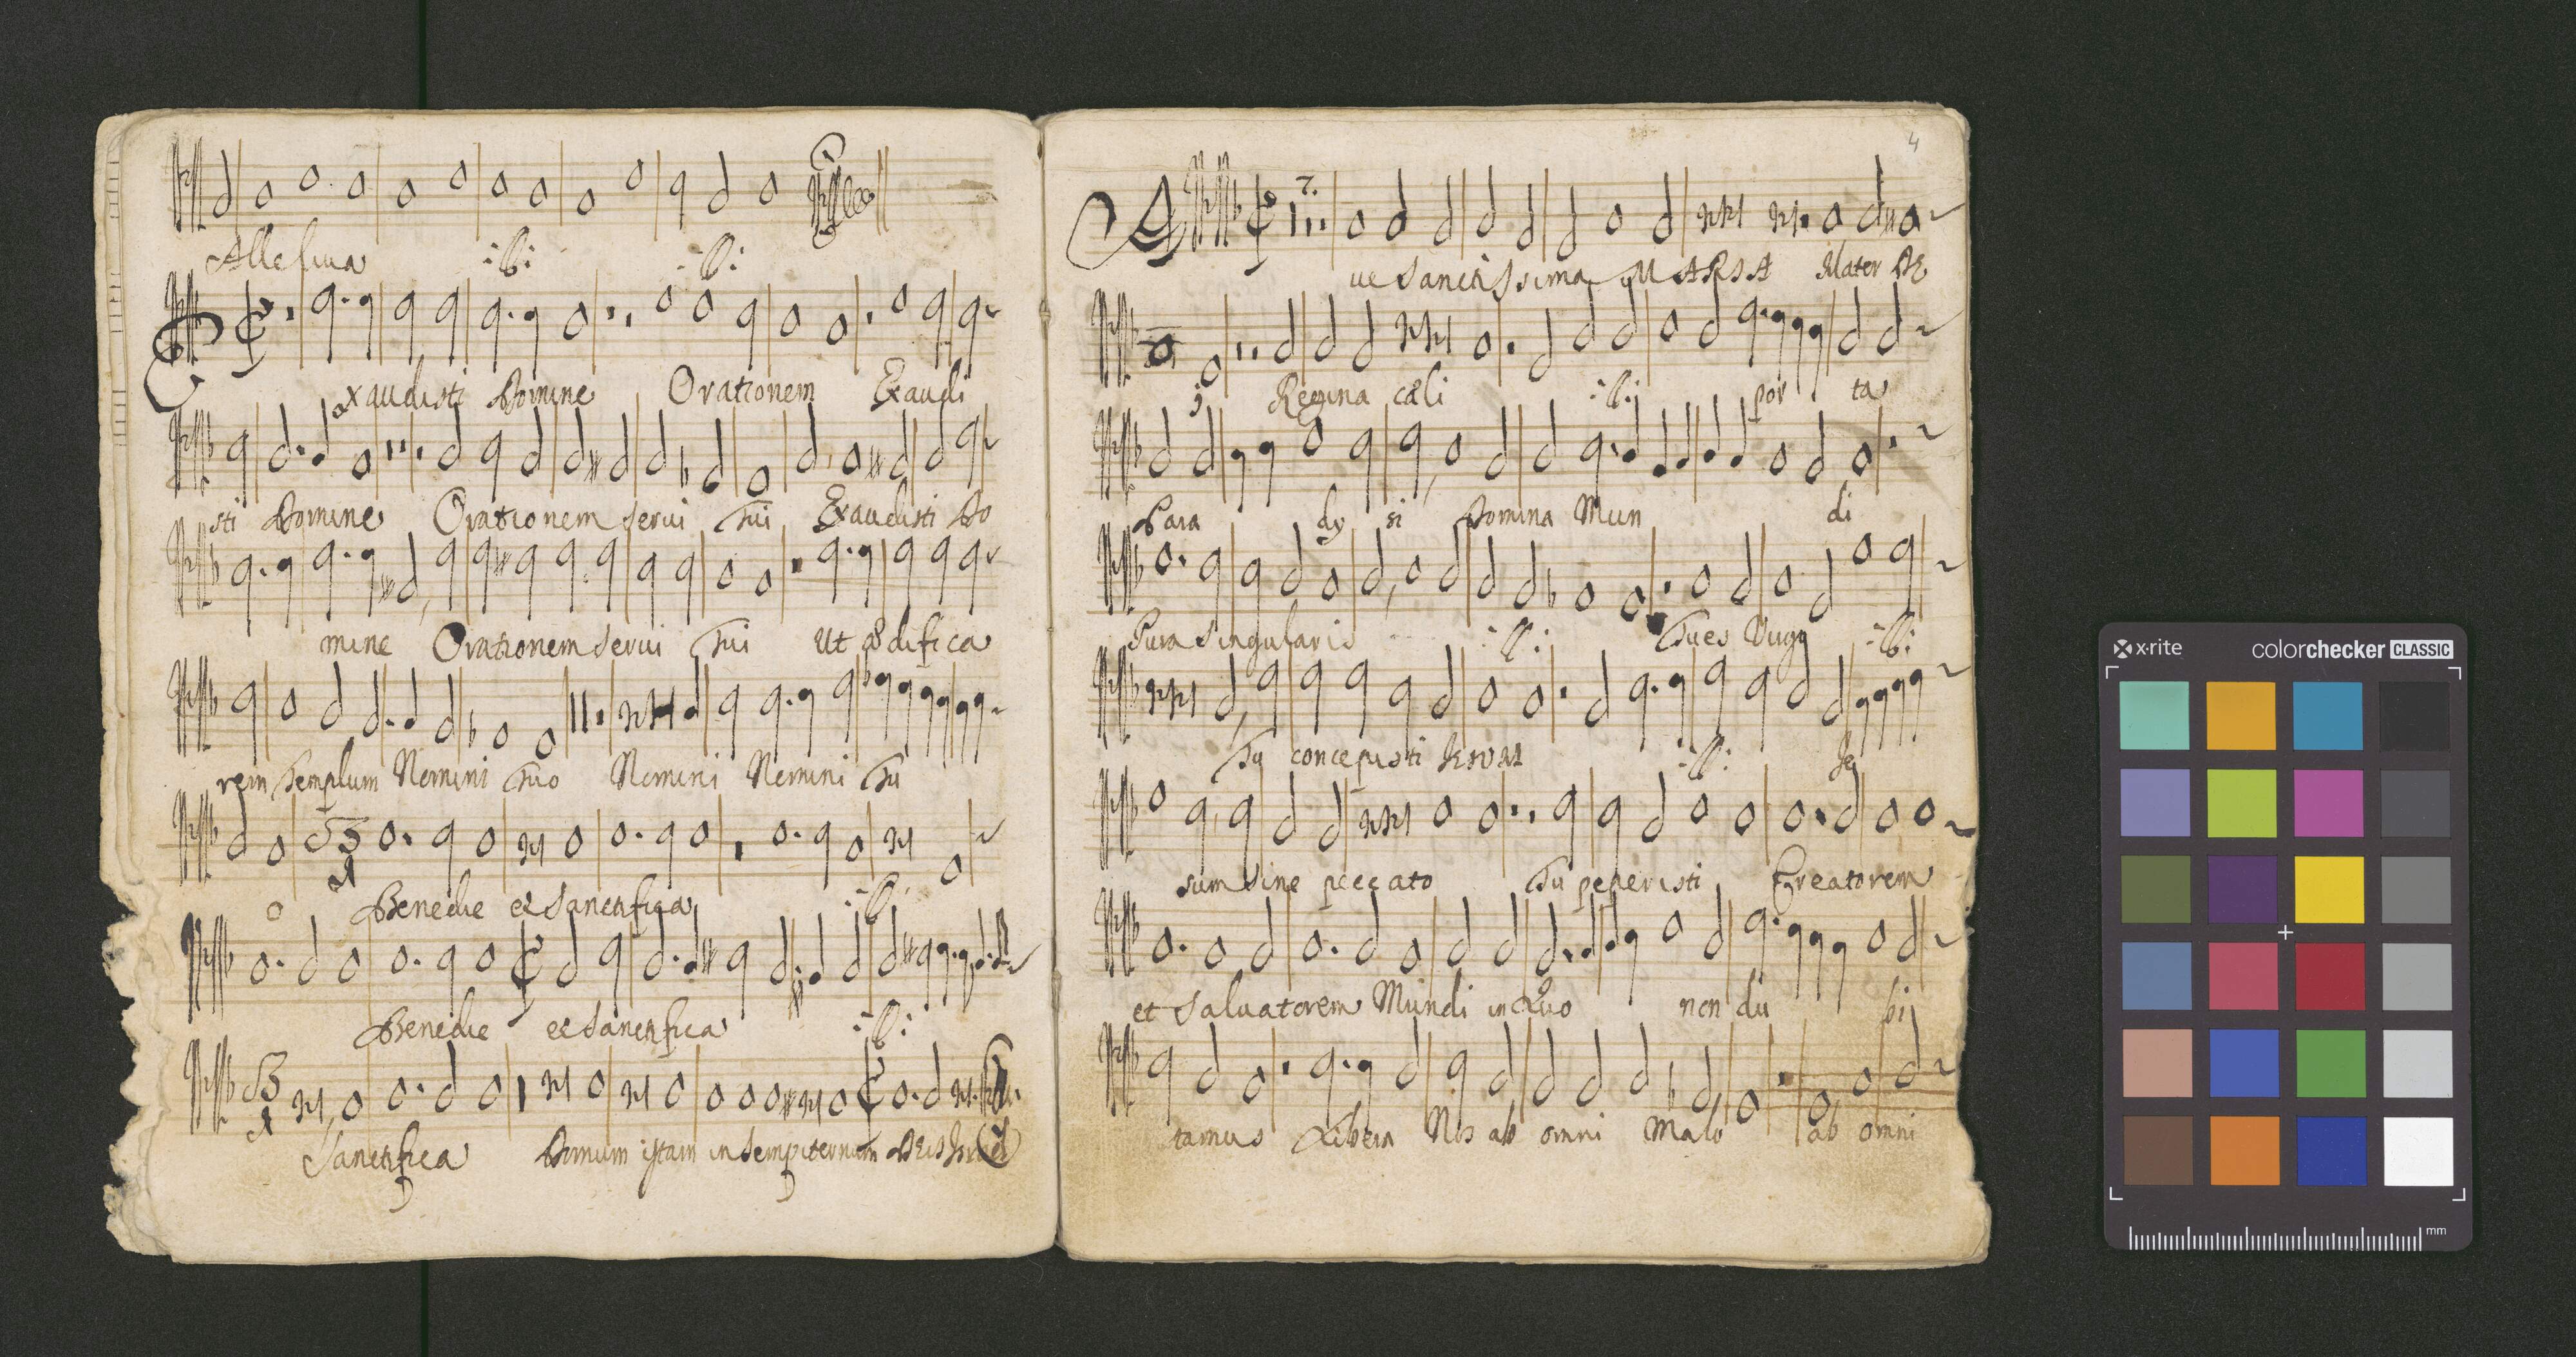 Alleluia :ll: :ll:
Exaudisti Domine Orationem Exaudi
sti Domine Orationem servi Tui Exaudisti Do
mine Orationem servi Tui Ut ædifica
rem Templum Nomini Tuo Nomini Nomini Tu
o Benedic et Sanctifica :ll:
Benedic et Sanctifica :ll:
Sanctifica Domum istam in sempiternum DEUS Israel
4
7.
Aue Sanctissima MARIA Mater DE
j Regina cæli :ll: por ta
Para dy si Domina Mun di
Pura singularis :ll: Tu es Virgo :ll:
Tu concepisti JESUM :ll: Je
sum sine peccato Tu peperisti Creatorem
et Saluatorem Mundi in Quo non du bi
tamus Libera Nos ab omni Malo ab omni
x-rite colorchecker CLASSIC
mm